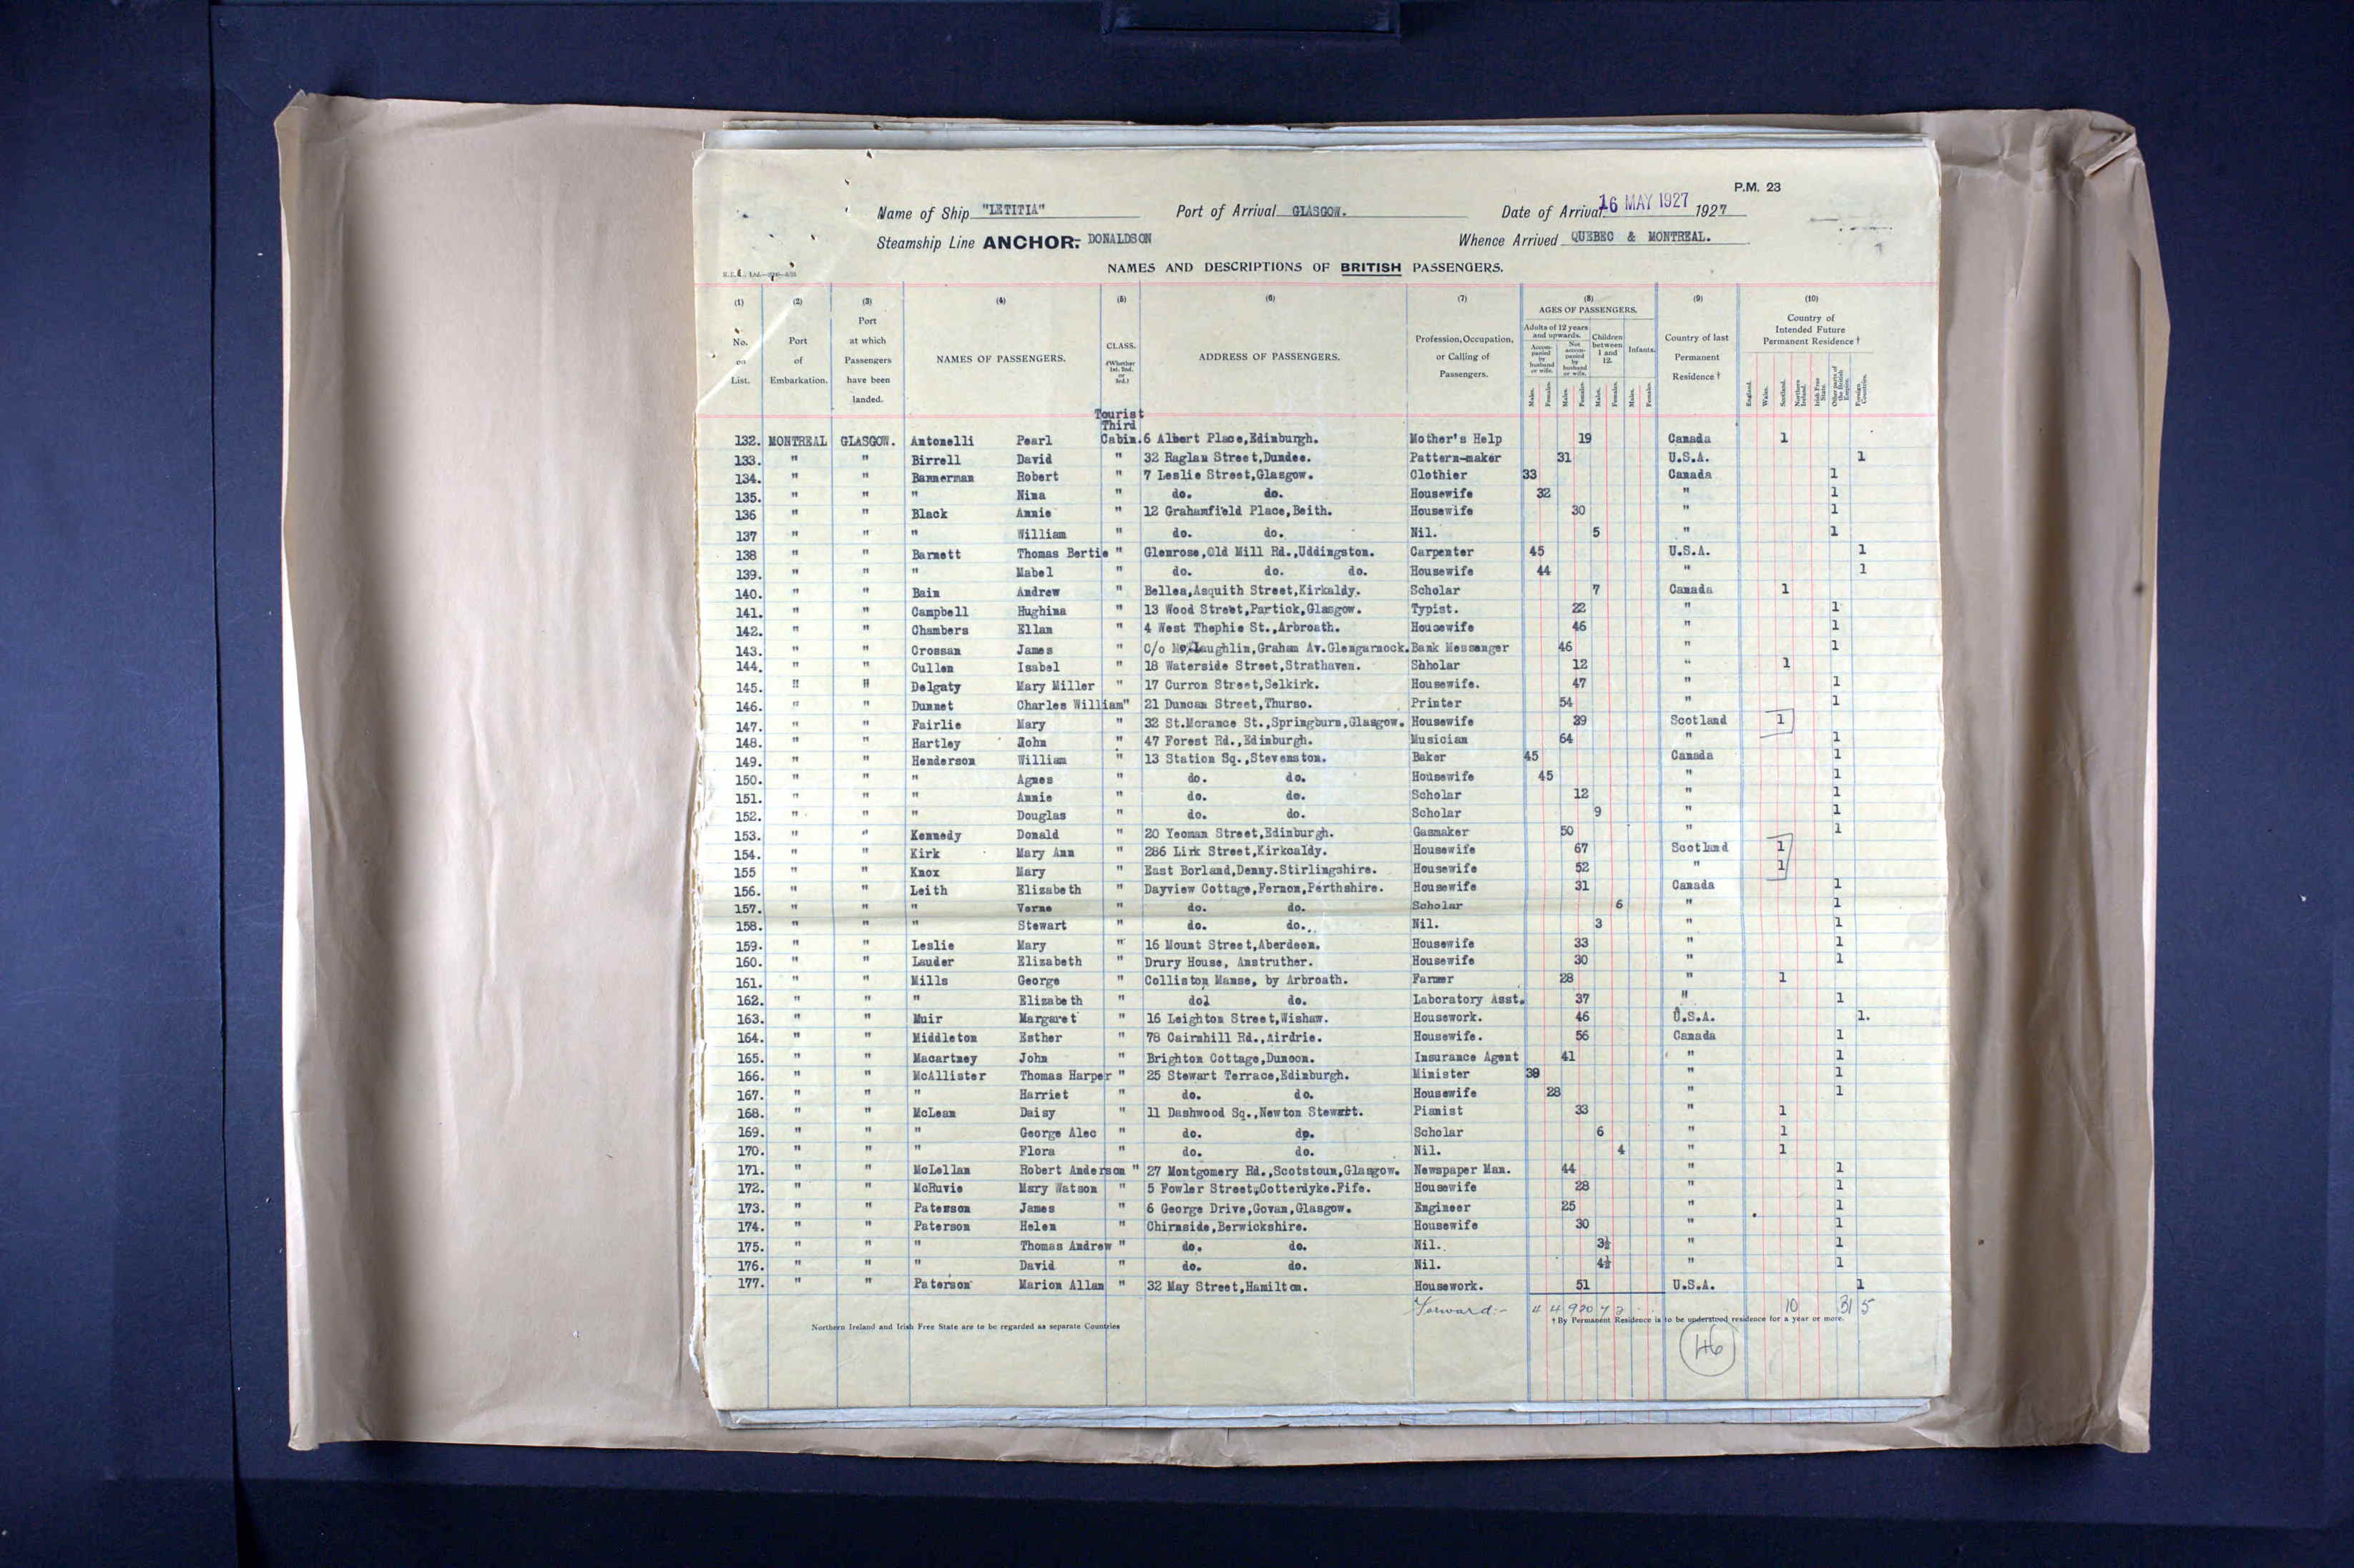 P.M. 23
Name of Ship "LETITIA" Port of Arrival GLASGOW. Date of Arrival 16 MAY 1927 1927
Steamship Line ANCHOR: DONALDSON Whence Arrived QUEBEC & MONTREAL.
NAMES AND DESCRIPTIONS OF BRITISH PASSENGERS.
(1) (2) (3) (4) (5) (6) (7) (8) (9) (10)
No. on List.
Port of Embarkation.
Port at which Passengers have been landed.
NAMES OF PASSENGERS.
CLASS. (Whether 1st, 2nd, or 3rd.)
ADDRESS OF PASSENGERS.
Profession, Occupation, or Calling of Passengers.
AGES OF PASSENGERS.
Adults of 12 years and upwards.
Accompanied by husband or wife.
Not accompanied by husband or wife.
Children between 1 and 12.
Infants.
Males. Females. Males. Females. Males. Females. Males. Females.
Country of last Permanent Residence †
Country of Intended Future Permanent Residence †
England. Wales. Scotland. Northern Ireland. Irish Free State. Other parts of the British Empire. Foreign Countries.
Tourist
Third
132. MONTREAL GLASGOW. Antonelli Pearl Cabin. 6 Albert Place,Edinburgh. Mother's Help 19 Canada 1
133. " " Birrell David " 32 Raglan Street,Dundee. Pattern-maker 31 U.S.A. 1
134. " " Bannerman Robert " 7 Leslie Street,Glasgow. Clothier 33 Canada 1
135. " " " Nina " do. do. Housewife 32 " 1
136 " " Black Annie " 12 Grahamfield Place,Beith. Housewife 30 " 1
137 " " " William " do. do. Nil. 5 " 1
138 " " Barnett Thomas Bertie " Glenrose,Old Mill Rd.,Uddingston. Carpenter 45 U.S.A. 1
139. " " " Mabel " do. do. do. Housewife 44 " 1
140. " " Bain Andrew " Bellea,Asquith Street,Kirkaldy. Scholar 7 Canada 1
141. " " Campbell Hughina " 13 Wood Street,Partick,Glasgow. Typist. 22 " 1
142. " " Chambers Ellan " 4 West Thephie St.,Arbroath. Housewife 46 " 1
143. " " Crossan James " C/o McLaughlin,Graham Av.Glengarnock. Bank Messenger 46 " 1
144. " " Cullen Isabel " 18 Waterside Street,Strathaven. Shholar 12 " 1
145. " " Delgaty Mary Miller " 17 Curron Street,Selkirk. Housewife. 47 " 1
146. " " Dunnet Charles William" 21 Duncan Street,Thurso. Printer 54 " 1
147. " " Fairlie Mary " 32 St.Morance St.,Springburn,Glasgow. Housewife 39 Scotland 1
148. " " Hartley John " 47 Forest Rd.,Edinburgh. Musician 64 " 1
149. " " Henderson William " 13 Station Sq.,Stevenston. Baker 45 Canada 1
150. " " " Agnes " do. do. Housewife 45 " 1
151. " " " Annie " do. do. Scholar 12 " 1
152. " " " Douglas " do. do. Scholar 9 " 1
153. " " Kennedy Donald " 20 Yeoman Street,Edinburgh. Gasmaker 50 " 1
154. " " Kirk Mary Ann " 286 Lirk Street,Kirkcaldy. Housewife 67 Scotland 1
155 " " Knox Mary " East Borland,Denny.Stirlingshire. Housewife 52 " 1
156. " " Leith Elizabeth " Dayview Cottage,Fernon,Perthshire. Housewife 31 Canada 1
157. " " " Verne " do. do. Scholar 6 " 1
158. " " " Stewart " do. do. Nil. 3 " 1
159. " " Leslie Mary " 16 Mount Street,Aberdeen. Housewife 33 " 1
160. " " Lauder Elizabeth " Drury House, Anstruther. Housewife 30 " 1
161. " " Mills George " Colliston Manse, by Arbroath. Farmer 28 " 1
162. " " " Elizabeth " dol do. Laboratory Asst. 37 " 1
163. " " Muir Margaret " 16 Leighton Street,Wishaw. Housework. 46 U.S.A. 1.
164. " " Middleton Esther " 78 Cairnhill Rd.,Airdrie. Housewife. 56 Canada 1
165. " " Macartney John " Brighton Cottage,Dunoon. Insurance Agent 41 " 1
166. " " McAllister Thomas Harper " 25 Stewart Terrace,Edinburgh. Minister 39 " 1
167. " " " Harriet " do. do. Housewife 28 " 1
168. " " McLean Daisy " 11 Dashwood Sq.,Newton Stewart. Pianist 33 " 1
169. " " " George Alec " do. do. Scholar 6 " 1
170. " " " Flora " do. do. Nil. 4 " 1
171. " " McLellan Robert Anderson " 27 Montgomery Rd.,Scotstoun,Glasgow. Newspaper Man. 44 " 1
172. " " McRuvie Mary Watson " 5 Fowler Street,Cotterdyke.Fife. Housewife 28 " 1
173. " " Paterson James " 6 George Drive,Govan,Glasgow. Engineer 25 " 1
174. " " Paterson Helen " Chirnside,Berwickshire. Housewife 30 " 1
175. " " " Thomas Andrew " do. do. Nil. 3½ " 1
176. " " " David " do. do. Nil. 4½ " 1
177. " " Paterson Marion Allan " 32 May Street,Hamilton. Housework. 51 U.S.A. 1
Forward:- 4 4 9 20 7 2 10 31 5
Northern Ireland and Irish Free State are to be regarded as separate Countries
† By Permanent Residence is to be understood residence for a year or more.
46